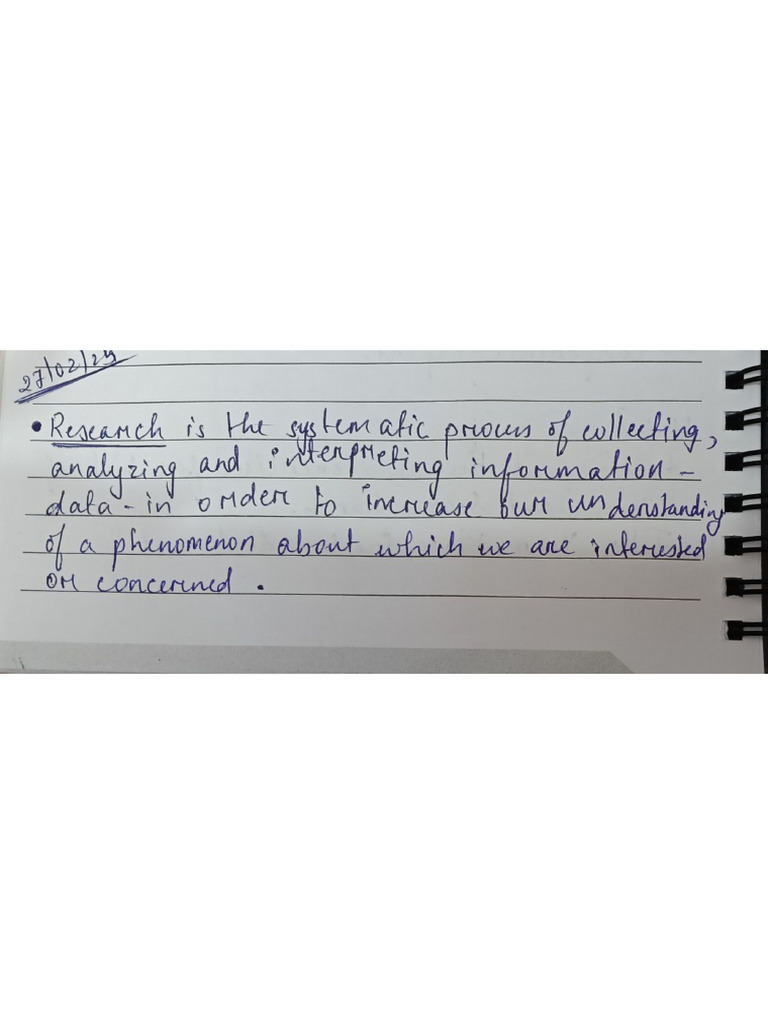 27/02/24
• Research is the systematic process of collecting,
analyzing and interpreting information -
data - in order to increase our understanding
of a phenomenon about which we are interested
or concerned.